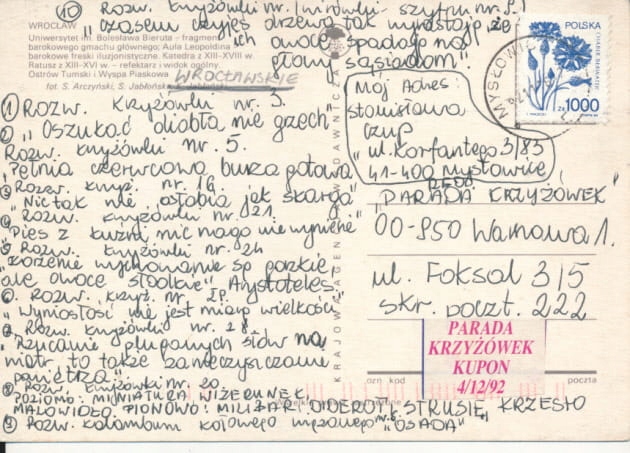 ⑩ Rozw. Krzyżówki nr. 1 mirówki- szyfru nr. 9.
"Czasem czyjeś drzewa tak wyrastają że
ich owoce spadają na
głowy sąsiadom"
WROCŁAW
Uniwersytet im. Bolesława Bieruta - fragment
barokowego gmachu głównego; Aula Leopoldina i
barokowe freski iluzjonistyczne. Katedra z XIII-XVIII w.
Ratusz z XIII-XVI w. - refektarz i widok ogólny.
Ostrów Tumski i Wyspa Piaskowa
WROCŁAWSKIE
fot. S. Arczyński, S. Jabłońska, K. Jabłoński
① Rozw. Krzyżówki nr. 3.
"Oszukać diabła nie grzech"
Rozw. krzyżówki nr. 5.
"Pełnia czerwcowa burza gotowa"
③ Rozw. krzyż. nr. 16.
"Nic tak nie osłabia jak skarga"
④ Rozw. krzyżówki nr. 21.
"Pies z kuźni nic nago nie wyniene"
⑤ Rozw. krzyżówki nr. 24
"Korzenie wychowania są gorzkie,
ale owoce słodkie" Arystoteles.
⑥ Rozw. krzyż. nr. 27.
"Wyniosłość nie jest miarą wielkości"
⑦ Rozw. krzyżówki nr. 28.
"Rzucanie plugawych słów na
wiatr to także zanieczyszczanie
powietrza".
⑧ Rozw. krzyżówki nr. 20.
POZIOMO: MINIATURA WIZERUNEK,
MALOWIDŁO, PIONOWO: MILITARI, DIDEROT, STRUSIE, KRZESŁO
⑨ Rozw. kalambum kołowego wyrazowego nr. 6. "OSADA"
KRAJOWA AGENCJA WYDAWNICZA
Mój Adres:
Stanisława
Czup
ul. Korfantego 3/83
41-400 Mysłowice
MYSŁOWICE
POLSKA
1000
RED.
"PARADA KRZYŻÓWEK"
00-950 Warszawa 1.
ul. Foksal 3/5
skr. poczt. 222
PARADA
KRZYŻÓWEK
KUPON
4/12/92
ozn kod
poczta